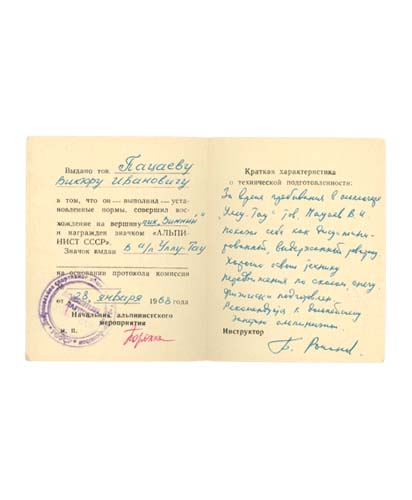 Выдано тов. Пацаеву
Виктору Ивановичу
в том, что он — выполнил — уста-
новленные нормы, совершил вос-
хождение на вершину пик „Зимний"
и награжден значком «АЛЬПИ-
НИСТ СССР».
Значок выдан В а/л Уллу-Тау
на основании протокола комиссии
от "28" января 1968 года
Начальник альпинистского
мероприятия
м. п.
Краткая характеристика
о технической подготовленности:
За время пребывания в альплагере
„Уллу-Тау" тов. Пацаев В. И
показал себя как дисциплини-
рованный, выдержанный
Хорошо освоил технику
передвижения по скалам, снегу.
Физически подготовлен.
Рекомендуется к дальнейшему
занятию альпинизмом.
Инструктор